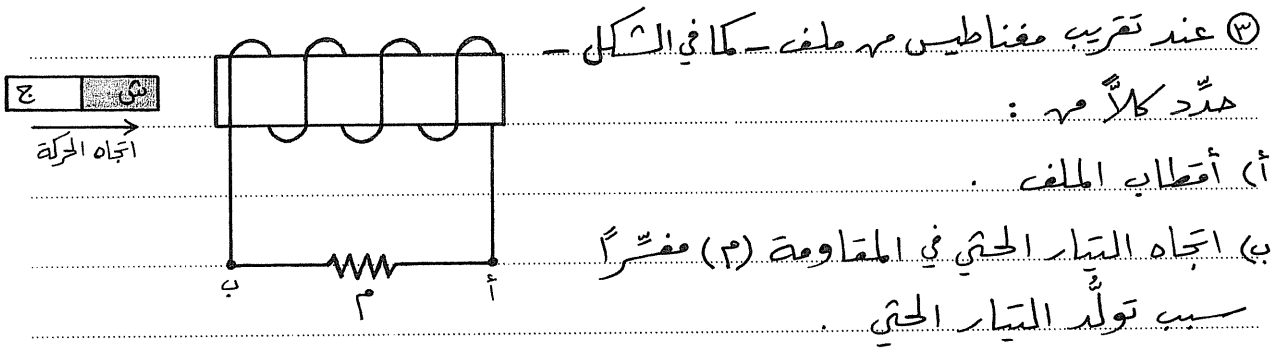 ٣ عند تقريب مغناطيس من ملف - كما في الشكل -
حدِّد كلاًّ من :
أ) أقطاب الملف .
ب) اتجاه التيار الحثي في المقاومة (م) مفسِّرًا
سبب تولُّد التيار الحثي .
ج ش
اتجاه الحركة
ب م أ